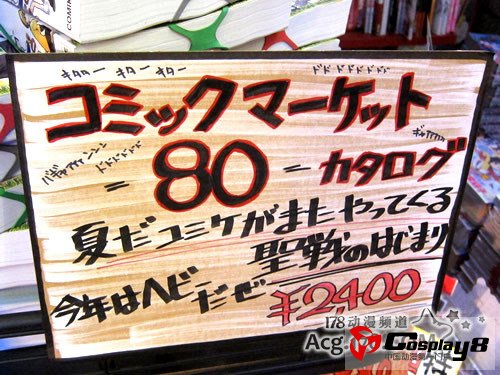 キター キター キター
ドドドドドドド
コミックマーケット
バギャアァァンンン
ドドドドドド
ギャアァァァ
=80= カタログ
夏だコミケがまたやってくる
聖戦のはじまり
今年はヘビーだぜ
¥2,400
178动漫频道
Acg
Cosplay8
中国动漫
COMIC